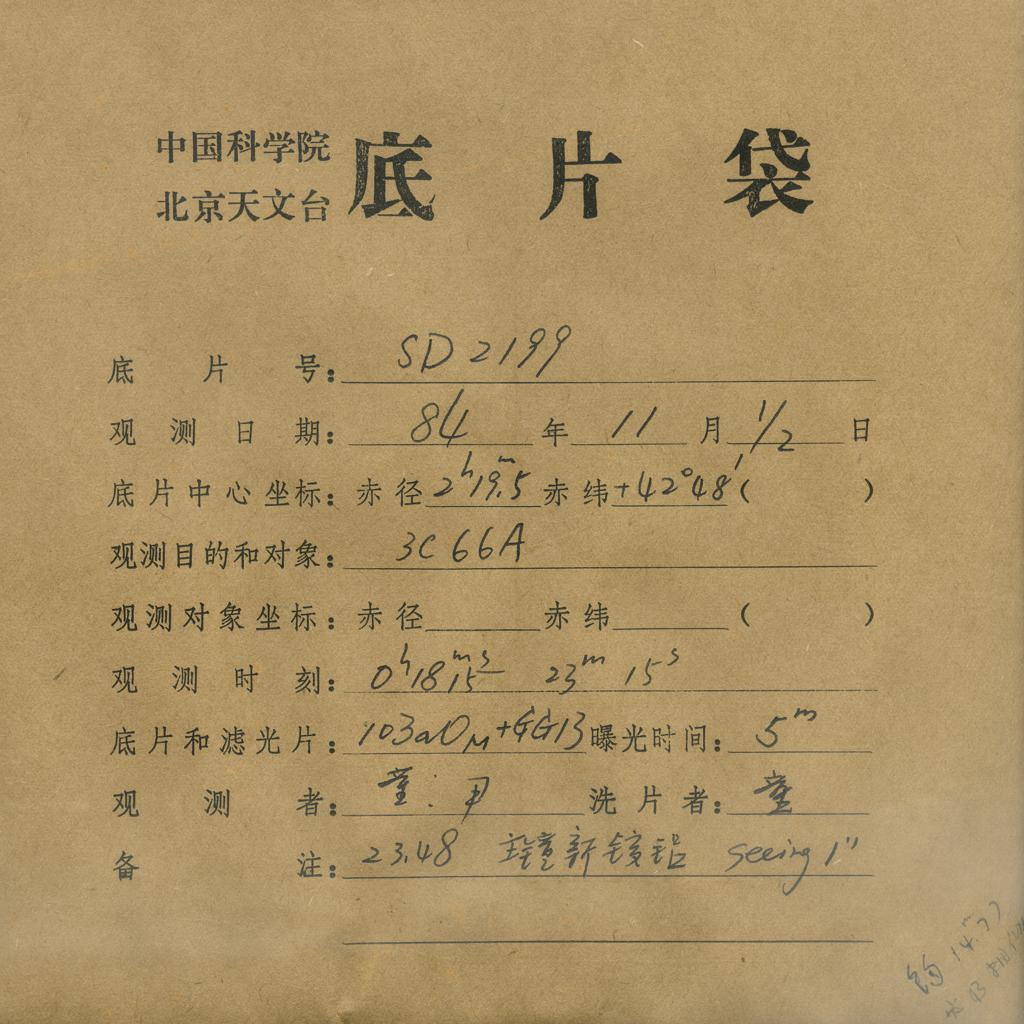 中国科学院
北京天文台
底片袋
底片号: SD2199
观测日期: 84年11月1/2日
底片中心坐标: 赤径2ʰ19ᵐ.5赤纬+42°48′( )
观测目的和对象: 3C66A
观测对象坐标: 赤径 赤纬 ( )
观测时刻: 0ʰ18ᵐ15ˢ— 23ᵐ 15ˢ
底片和滤光片: 103aO_M+GG13 曝光时间: 5ᵐ
观测者: 董.尹 洗片者: 董
备注: 23.48 主镜新镀铝 seeing 1″
14.ᵐ77